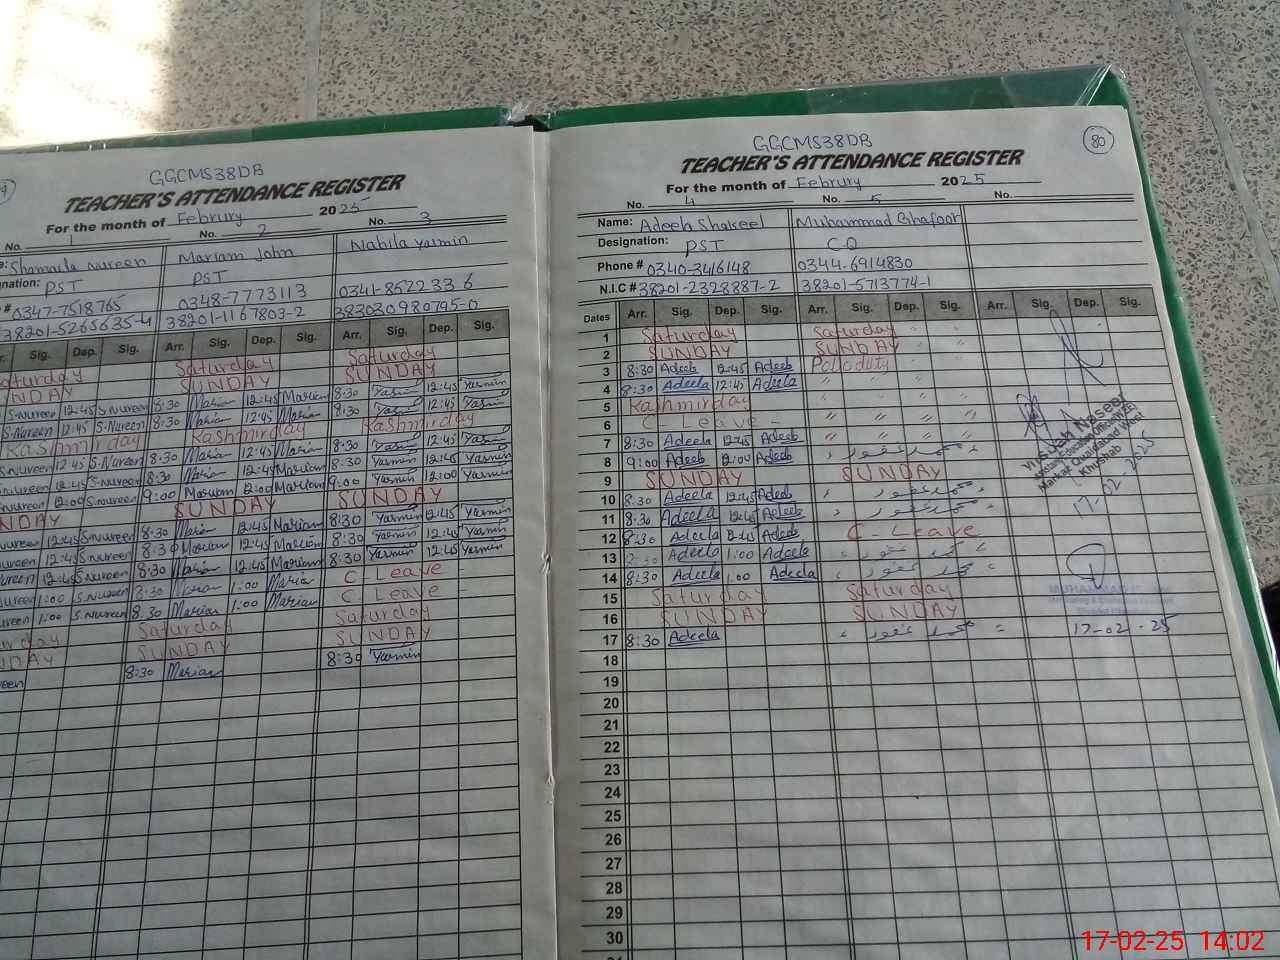 GGCMS38DB
TEACHER'S ATTENDANCE REGISTER
For the month of Februry 2025
No. 1 No. 2 No. 3
Shamaila Nureen Mariam John Nabila Yasmin
nation: PST PST
# 0347-7518765 0348-7773113 0341-8522336
38201-5265635-4 38201-1167803-2 383030980795-0
Sig. Dep. Sig. Arr. Sig. Dep. Sig. Arr. Sig. Dep. Sig.
Saturday Saturday Saturday
SUNDAY SUNDAY SUNDAY
S.Nureen 12:45 S.Nureen 8:30 Marian 12:45 Mariam 8:30 Yasmin 12:45 Yasmin
S.Nureen 12:45 S.Nureen 8:30 Maria 12:45 Maria 8:30 Yasmin 12:45 Yasmin
Kashmirday Kashmirday Kashmirday
Nureen 12:45 S.Nureen 8:30 Maria 12:45 Maria 8:30 Yasmin 12:45 Yasmin
Nureen 12:45 S.Nureen 8:30 Marian 12:45 Mariam 8:30 Yasmin 12:45 Yasmin
Nureen 12:00 S.Nureen 9:00 Mariam 12:00 Mariam 9:00 Yasmin 12:00 Yasmin
NDAY SUNDAY SUNDAY
Nureen 12:45 S.Nureen 8:30 Marian 12:45 Mariam 8:30 Yasmin 12:45 Yasmin
Nureen 12:45 S.Nureen 8:30 Mariam 12:45 Mariam 8:30 Yasmin 12:45 Yasmin
Nureen 12:45 S.Nureen 8:30 Marian 12:45 Mariam 8:30 Yasmin 12:45 Yasmin
Nureen 1:00 S.Nureen 8:30 Marian 1:00 Marian C-Leave
Nureen 1:00 S.Nureen 8:30 Marian 1:00 Marian C-Leave
Saturday Saturday
DAY SUNDAY SUNDAY
een 8:30 Marian 8:30 Yasmin
GGCMS38DB 80
TEACHER'S ATTENDANCE REGISTER
For the month of Februry 2025
No. 4 No. 5 No.
Name: Adeela Shakeel Muhammad Ghafoor
Designation: PST C.O
Phone # 0340-3416148 0344-6914830
N.I.C # 38201-2328887-2 38201-5713774-1
Dates Arr. Sig. Dep. Sig. Arr. Sig. Dep. Sig. Arr. Sig. Dep. Sig.
1 Saturday Saturday
2 SUNDAY SUNDAY " "
3 8:30 Adeela 12:45 Adeela Polio duty " "
4 8:30 Adeela 12:45 Adeela " " " "
5 Kashmirday " " " "
6 C-Leave - " " " "
7 8:30 Adeela 12:45 Adeela " " " "
8 9:00 Adeela 12:00 Adeela محمد غفور
9 SUNDAY SUNDAY
10 8:30 Adeela 12:45 Adeela محمد غفور
11 8:30 Adeela 12:45 Adeela محمد غفور
12 8:30 Adeela 12:45 Adeela C-Leave
13 Adeela 1:00 Adeela محمد غفور
14 8:30 Adeela 1:00 Adeela محمد غفور
15 Saturday Saturday
16 SUNDAY SUNDAY
17 8:30 Adeela محمد غفور
18
19
20
21
22
23
24
25
26
27
28
29
30
Naseer
Markaz Quaidabad West
Khushab
17-02-2025
17-02-25
17-02-25 14:02